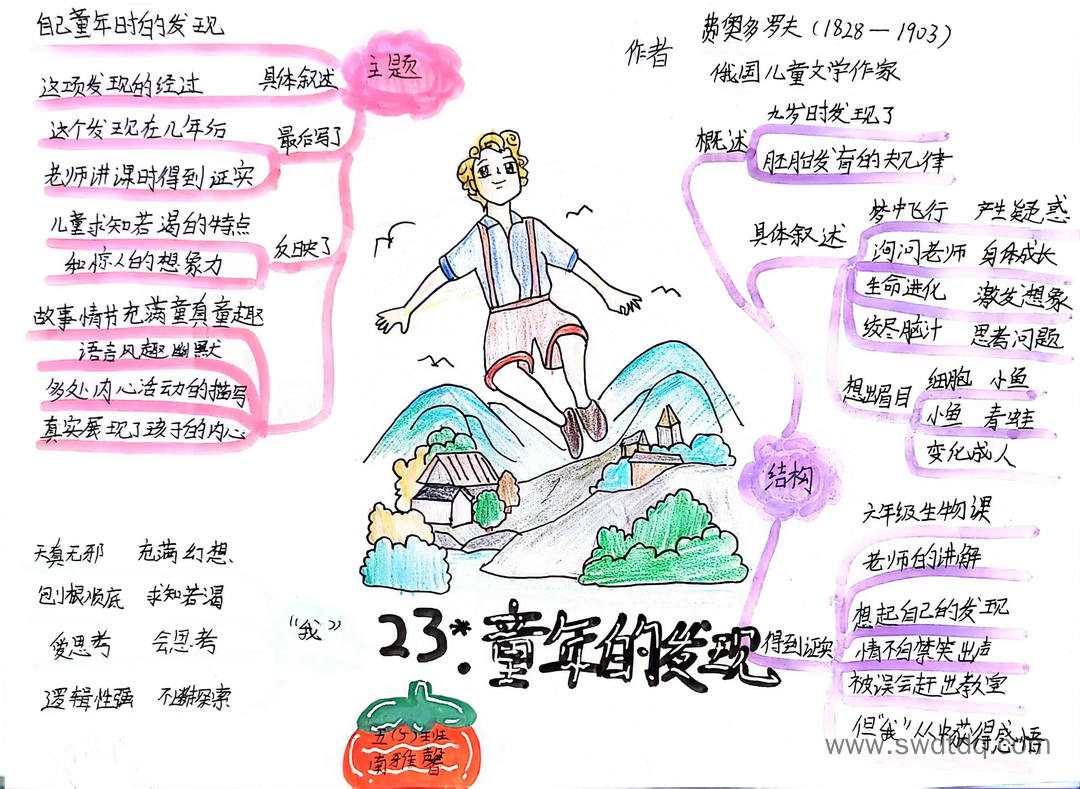 自己童年时的发现
主题
这项发现的经过
具体叙述
这个发现在几年后
最后写了
老师讲课时得到证实
儿童求知若渴的特点
反映了
和惊人的想象力
故事情节充满童真童趣
语言风趣幽默
多处内心活动的描写
真实展现了孩子的内心
天真无邪 充满幻想
刨根顺底 求知若渴
爱思考 会思考
逻辑性强 不断探索
“我”
作者
费奥多罗夫(1828—1903)
俄国儿童文学作家
概述
九岁时发现了
胚胎发育的规律
具体叙述
梦中飞行 产生疑惑
询问老师 身体成长
生命进化 激发想象
绞尽脑汁 思考问题
想出眉目
细胞 小鱼
小鱼 青蛙
变化成人
结构
六年级生物课
老师的讲解
想起自己的发现
得到证实
情不自禁笑出声
被误会赶出教室
但“我”从中获得感悟
23*.童年的发现
五(5)班
南雅馨
www.swdtdq.com